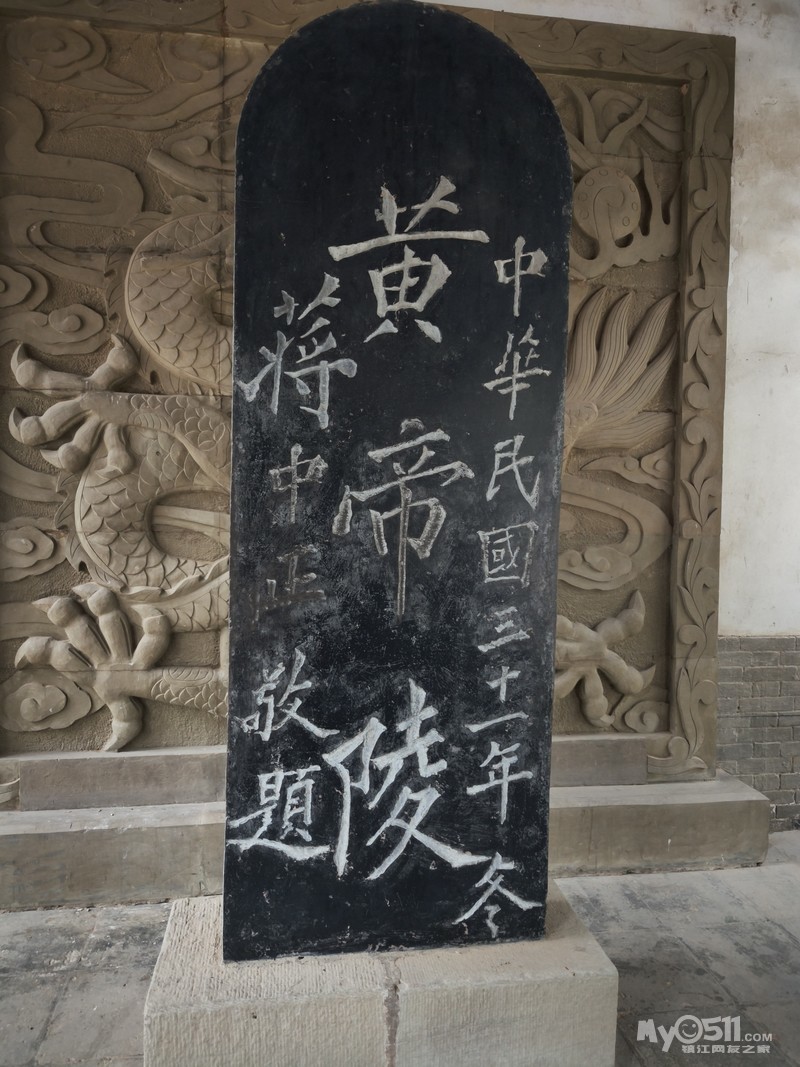 中華民國三十一年冬
黄帝陵
蔣中正敬題
My0511.COM
镇江网友之家